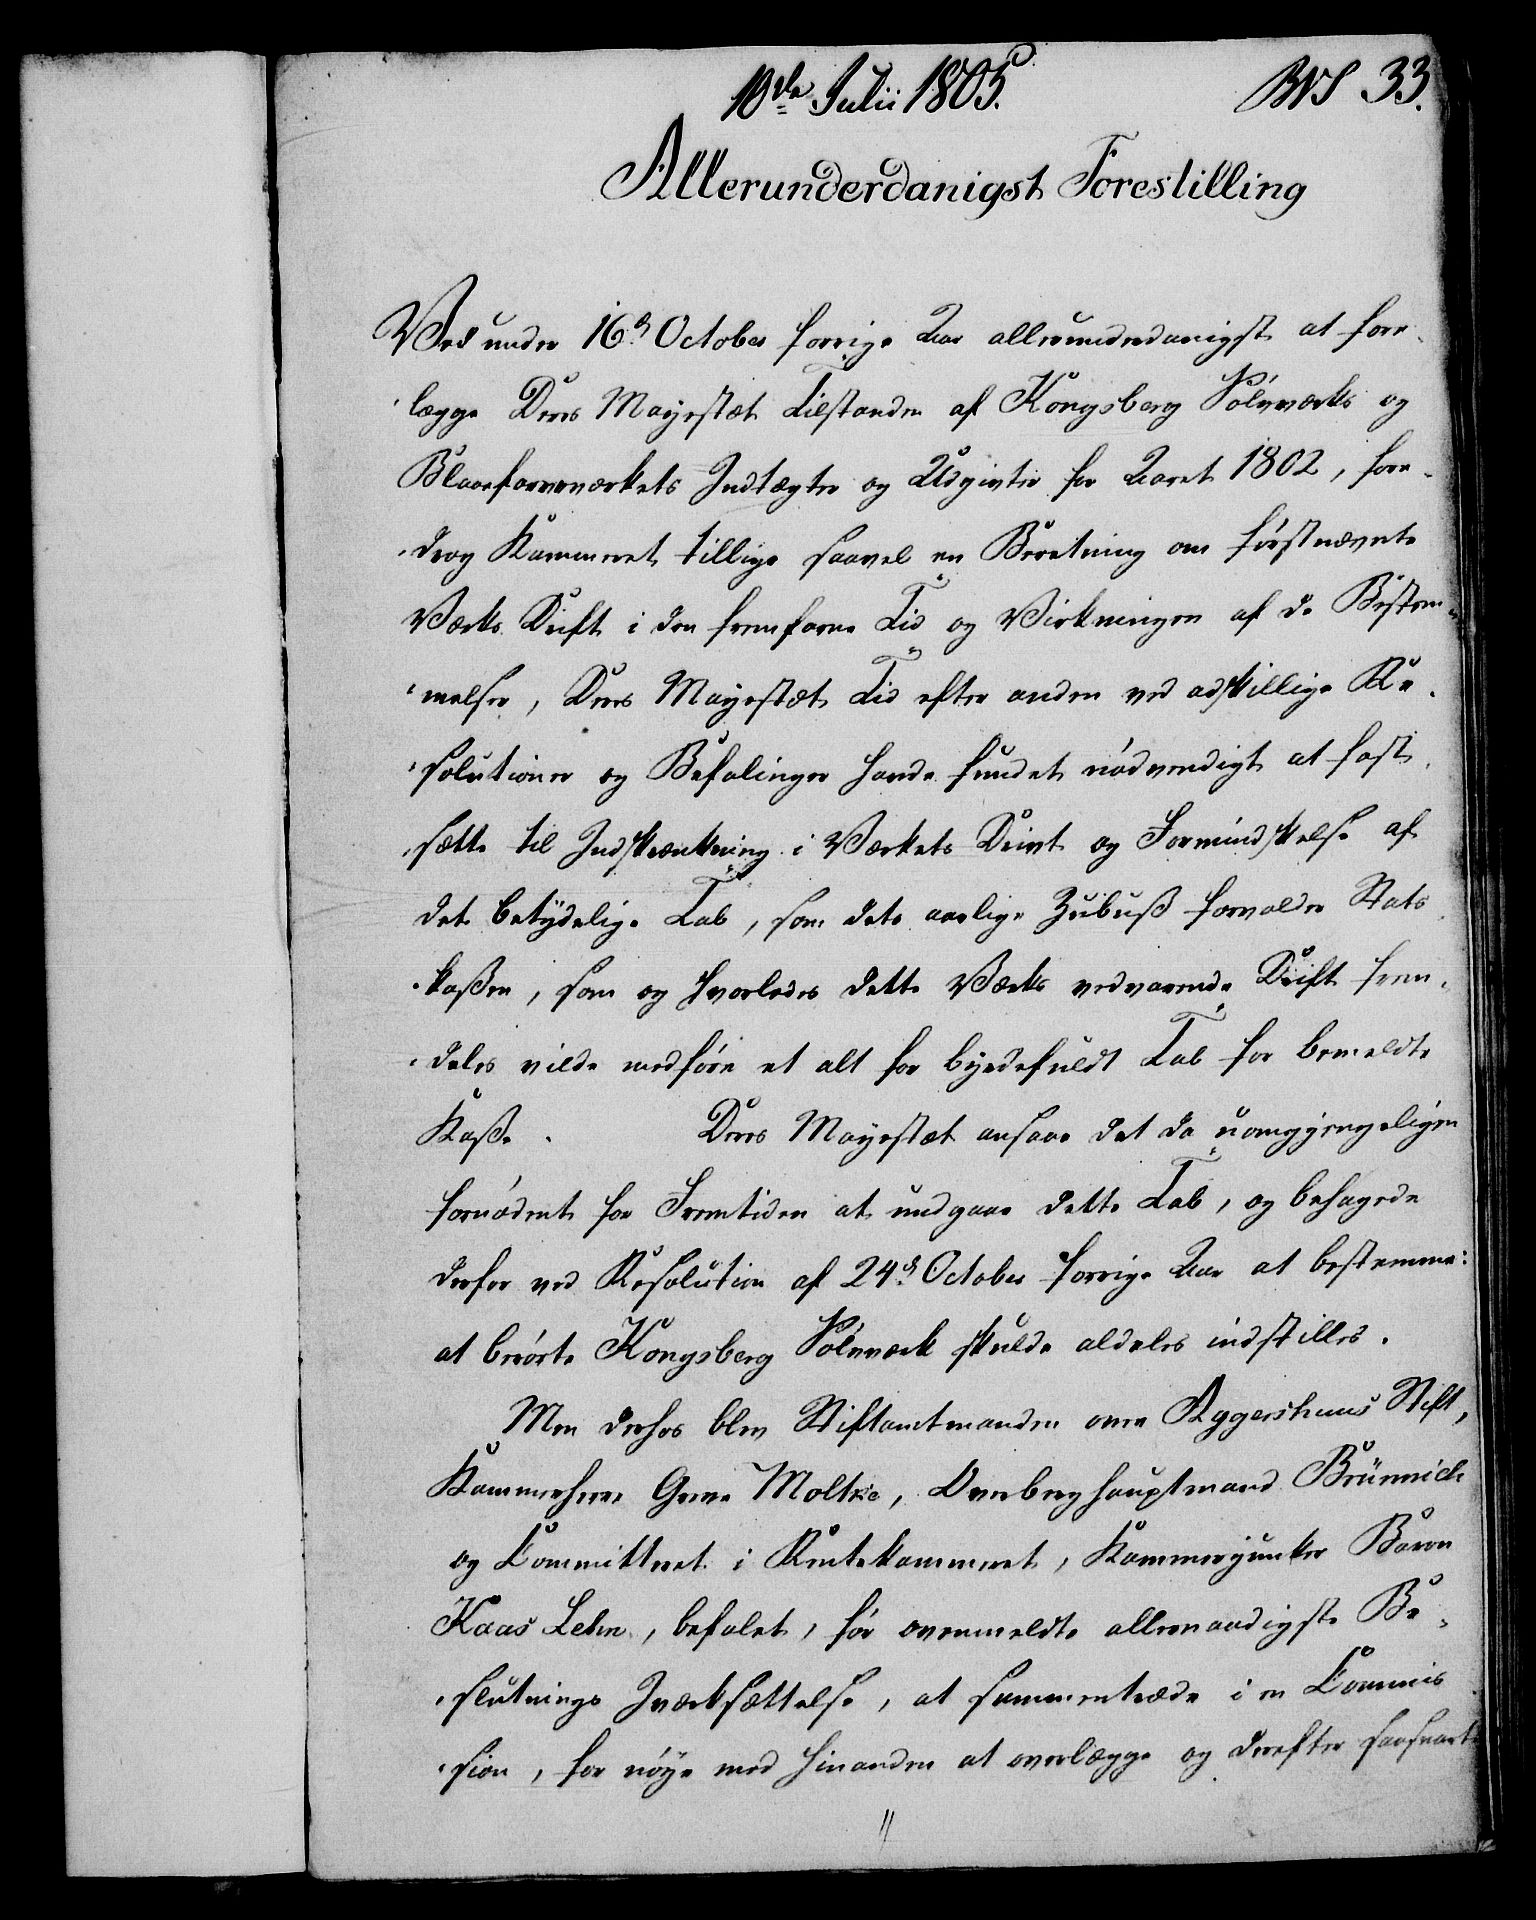 10de Julii 1805. BVS 33.
Allerunderdanigst Forestilling
Ved under 16d October forrige Aar allerunderdanigst at fore-
lægge Deres Mayestæt Tilstanden af Kongsberg Sölvværks og
Blaaefarveværkets Indtægter og Udgivter for Aaret 1802, fore-
drog Kammeret tillige saavel en Beretning om förstnævnte
Værks Drift i den fremfarne Tid og Virkningen af de Bestem-
melser, Deres Mayestæt Tid efter anden ved adskillige Re-
solutioner og Befalinger havde fundet nödvendigt at fast-
sætte til Indskrænkning i Værkets Drivt og Formindskelse af
det betydelige Tab, som dets aarlige Zubuß forvolder Stats
kaßen, som og hvorledes dette Værks vedvarende Drift frem-
deles vilde medföre et alt for byrdefuldt Tab for bemeldte
Kaße. Deres Mayestæt ansaae det da uomgjengeligen
fornødent for Fremtiden at undgaae dette Tab, og behagede
derfor ved Resolution af 24d October forrige Aar at bestemme:
at berörte Kongsberg Sölvværk skulde aldeles indstilles.
Men derhos blev Stiftamtmanden over Aggershuus Stift,
Kammerherre Greve Moltke, Overberghauptmand Brünnich
og Committeret i Rentekammeret, Kammerjunker Baron
Kaas Lehn, befalet, för ovenmeldte allernaadigste Be-
slutnings Iværksættelse, at sammentræde i en Commis
sion, for nöye med hinanden at overlægge og derefter saasnart